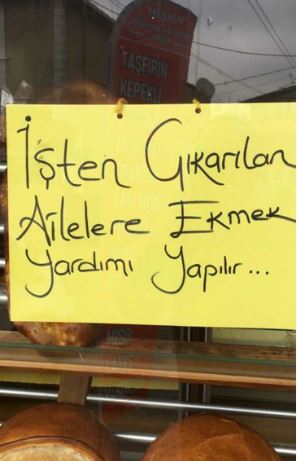 MEŞHUR
TAŞFIRIN
KEPEKLİ
İşten Çıkarılan
Ailelere Ekmek
Yardımı Yapılır...
MISIR